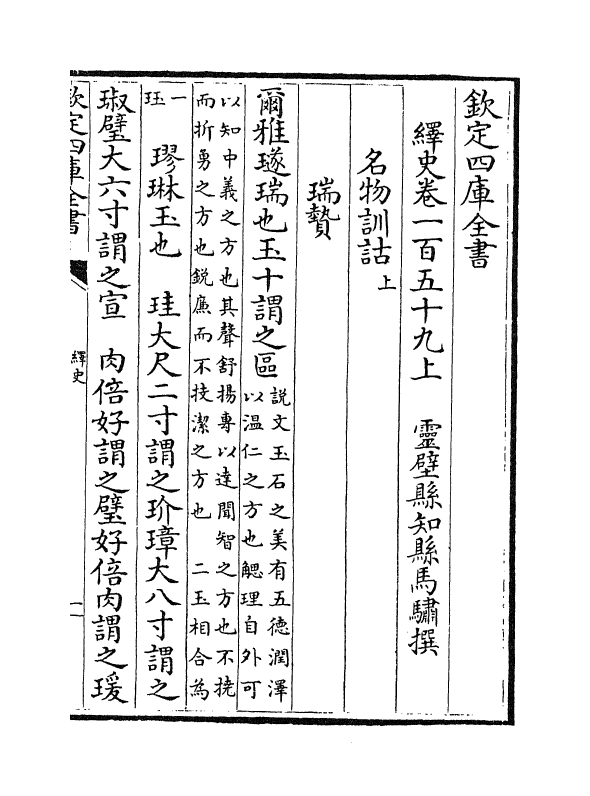 欽定四庫全書
繹史卷一百五十九上　靈壁縣知縣馬驌撰
名物訓詁上
瑞贄
爾雅璲瑞也玉十謂之區
説文玉石之美有五德潤澤
以温仁之方也䚡理自外可
以知中義之方也其聲舒揚專以達聞智之方也不撓
而折勇之方也鋭廉而不技潔之方也　二玉相合為
一
珏
璆琳玉也　珪大尺二寸謂之玠璋大八寸謂之
琡璧大六寸謂之宣　肉倍好謂之璧好倍肉謂之瑗
欽定四庫全書
繹史
一